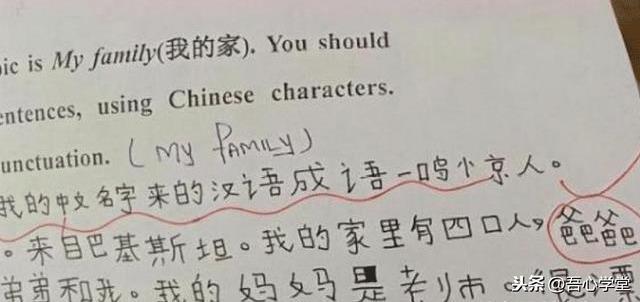 ic is My family(我的家). You should
entences, using Chinese characters.
unctuation. (My FAMILY)
我的中文名字来的汉语成语一鸣个京人。
。来自巴基斯坦。我的家里有四口人,爸爸
弟弟和我。我的妈妈是老师
头条 @吾心学堂